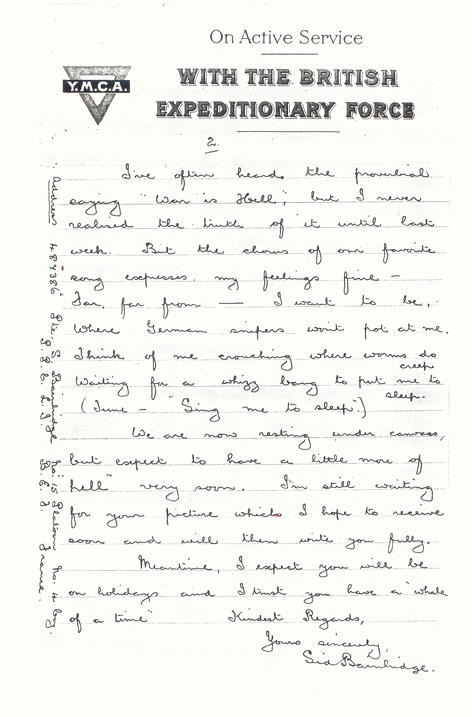 On Active Service
WITH THE BRITISH
EXPEDITIONARY FORCE
Y.M.C.A.
2.
I've often heard the proverbial
saying "War is Hell", but I never
realised the truth of it until last
week. But the chorus of our favorite
song expresses my feelings fine –
Far, far from — I want to be,
Where German snipers won't pot at me.
Think of me crouching where worms do
creep
Waiting for a whizz bang to put me to
sleep.
(Tune – "Sing me to sleep".)
We are now resting under canvass,
but expect to have a little more of
hell" very soon. I'm still waiting
for your picture which I hope to receive
soon and will then write you fully.
Meantime, I expect you will be
on holidays and I trust you have a "whale
of a time" Kindest Regards,
Yours sincerely,
Sid Bainbridge.
Address 487386 Pte. S. Bainbridge No. 15 Platoon No. 4 Coy.
P.P.C.L.I. B.E.F. France.